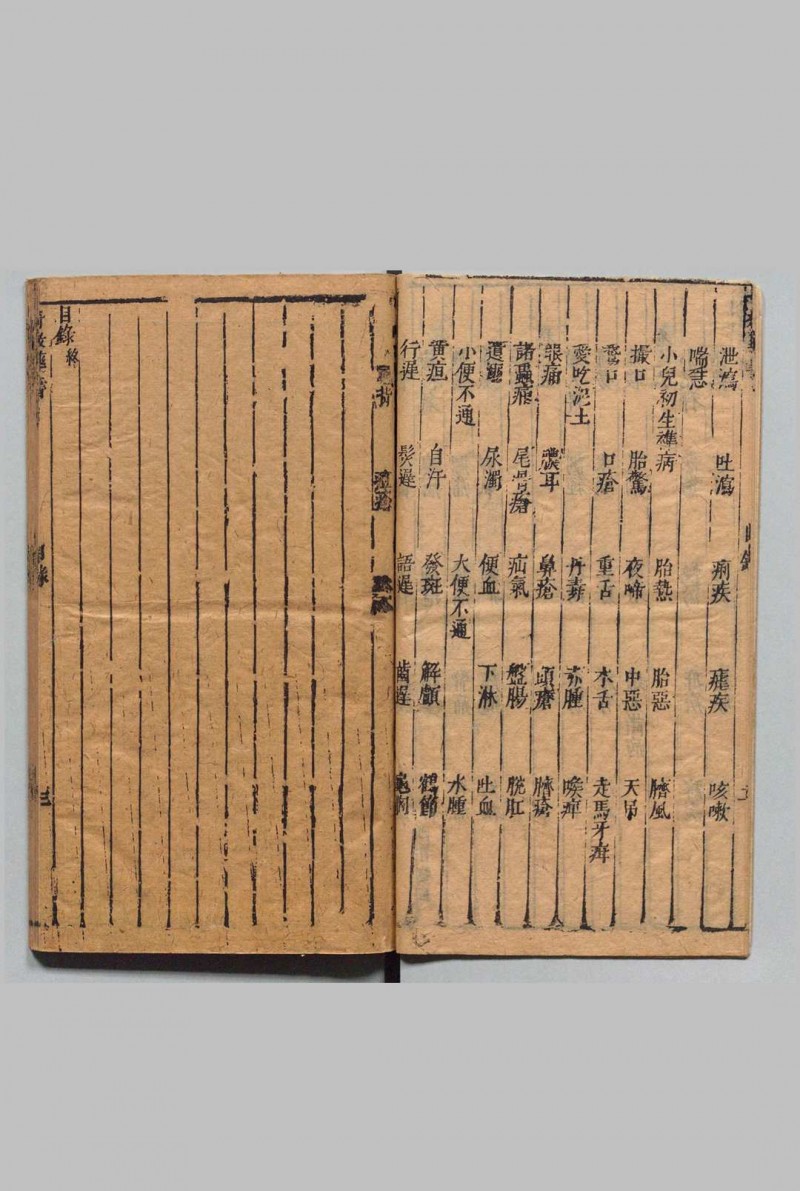 泄瀉 吐瀉 痢疾 瘧疾 咳嗽
喘急
小兒初生雜病 胎熱 胎惡 臍風
撮口 胎驚 夜啼 中惡 天吊
口瘡 重舌 木舌 走馬牙疳
愛吃泥土 丹毒 赤腫 喉痹
眼痛 膿耳 鼻瘡 頭瘡 臍瘡
諸蟲痛 尾骨瘡 疝氣 盤腸 脫肛
遺尿 尿濁 便血 下淋 吐血
小便不通 大便不通 水腫
黃疸 自汗 發斑 解顱 鶴節
行遲 髮遲 語遲 齒遲 龜胸
目錄終
目錄
三